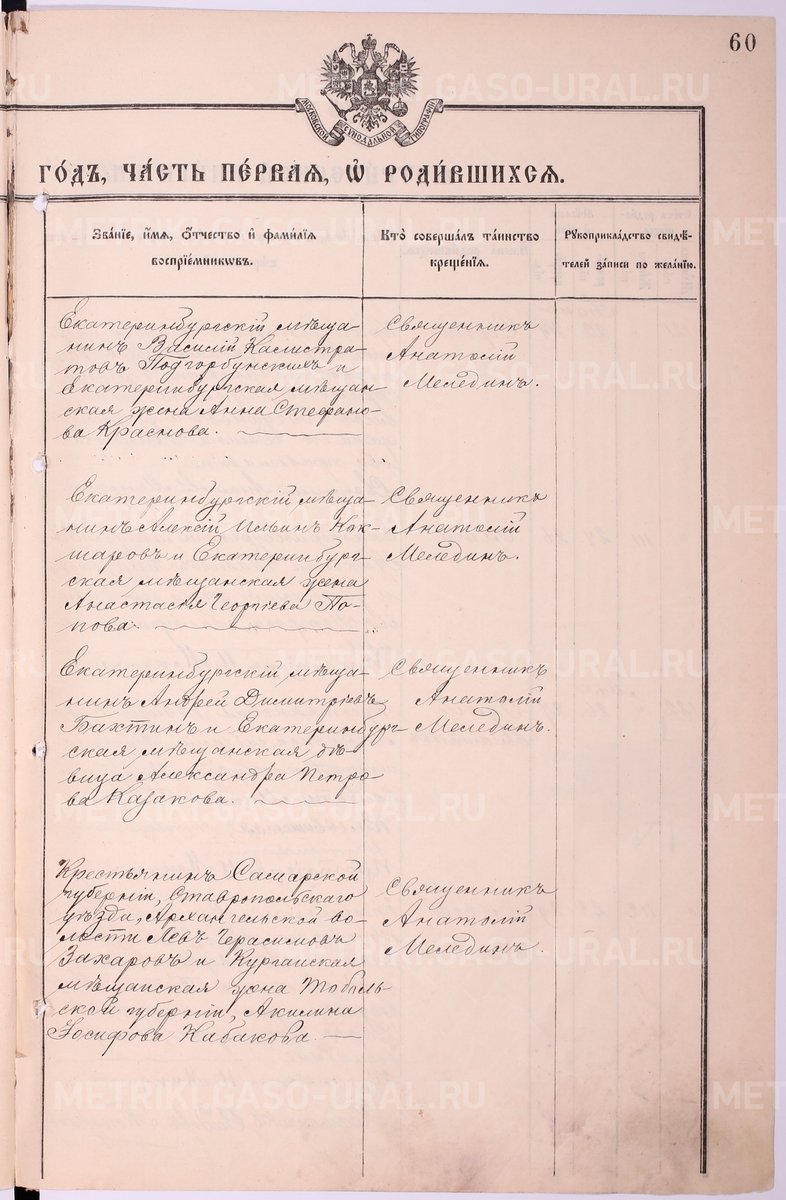 60
МОСКОВСКОЙ СѴНОДАЛЬНОЙ ТИПОГРАФІИ
ГО́ДЪ, ЧА́СТЬ ПЕ́РВАЯ, Ѡ҆ РОДИ́ВШИХСЯ.
Зва́ніе, и҆́мя, ѻ҆́тчество и҆ фами́лія
воспріе́мникѡвъ.
Кто̀ соверша́лъ та́инство
креще́нія.
Рꙋкоприкла́дство свидѣ́-
телей за́писи по жела́нію.
Екатеринбургскій мѣща-
нинъ Василій Калистра-
товъ Подгорбунскихъ и
Екатеринбургская мѣщан-
ская жена Анна Стефано-
ва Краснова.
Священникъ
Анатолій
Мелединъ.
Екатеринбургскій мѣща-
нинъ Алексій Ильинъ Кок-
шаровъ и Екатеринбург-
ская мѣщанская жена
Анастасія Георгіева По-
пова.
Священникъ
Анатолій
Мелединъ.
Екатеринбургскій мѣща-
нинъ Андрей Димитріевъ
Бахтинъ и Екатеринбург-
ская мѣщанская дѣ-
вица Александра Петро-
ва Казакова.
Священникъ
Анатолій
Мелединъ.
Крестьянинъ Самарской
губерніи, Ставропольскаго
уѣзда, Архангельской во-
лости Левъ Герасимовъ
Захаровъ и Курганская
мѣщанская жена Тоболь-
ской губерніи, Акилина
Іосифова Кабакова.
Священникъ
Анатолій
Мелединъ.
METRIKI.GASO-URAL.RU